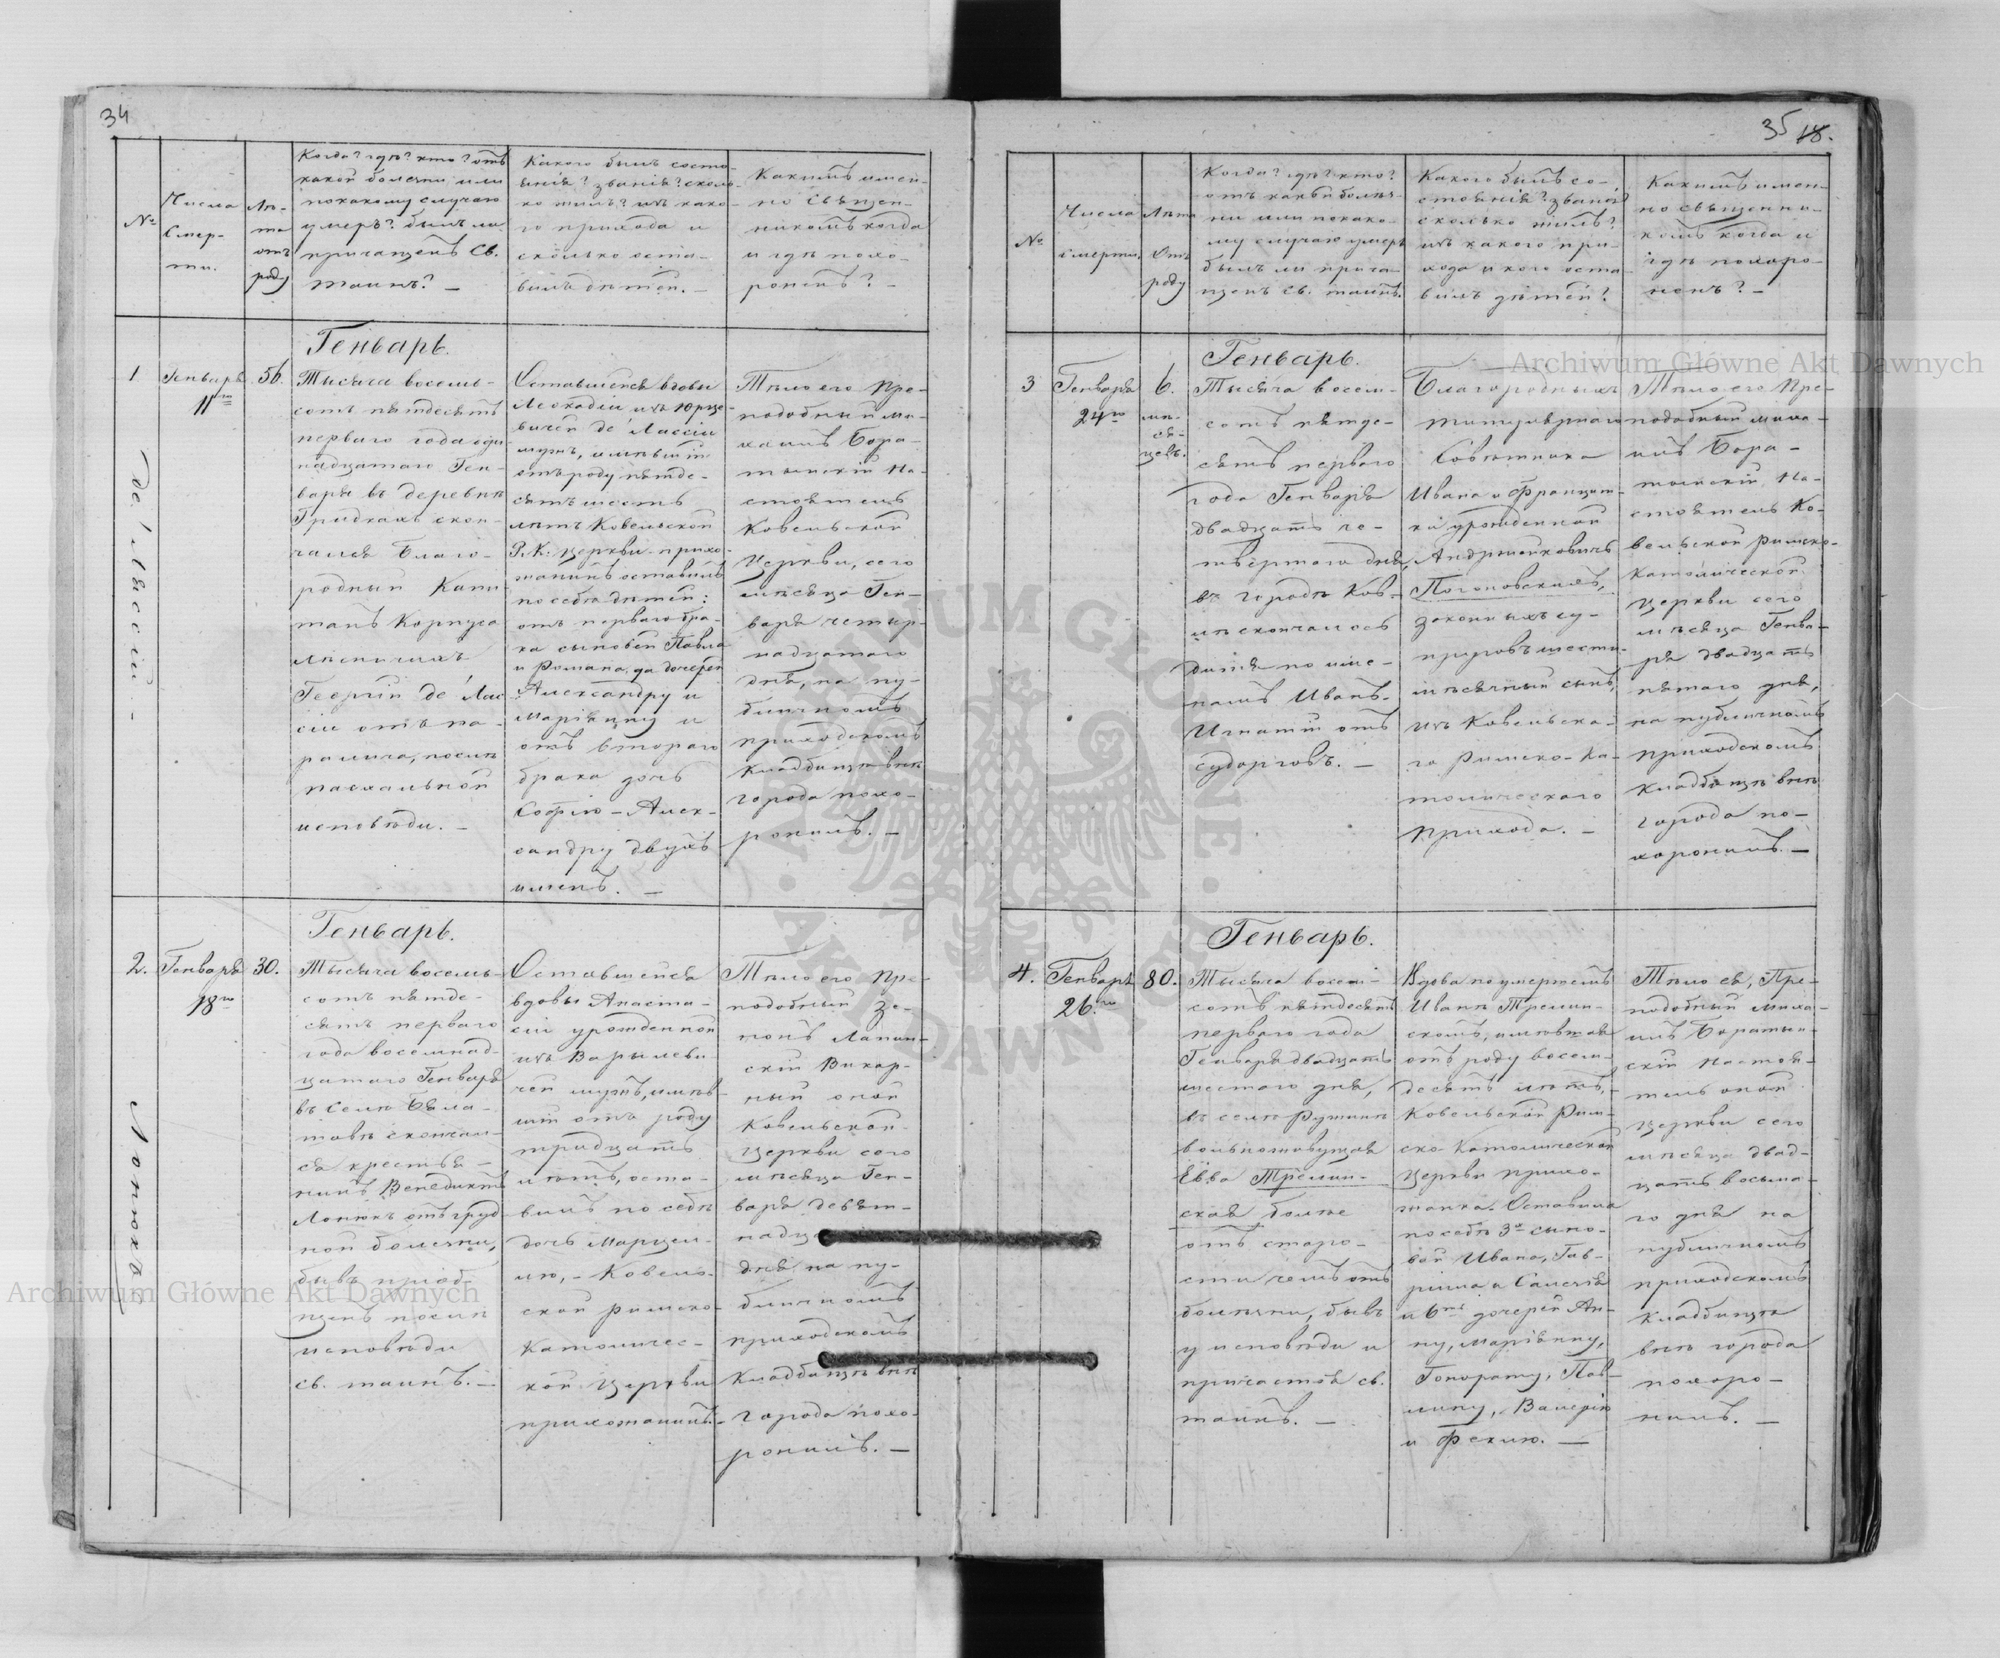 34
№
Числа
Смер-
ти.
Лѣ-
та
отъ
роду
Когда? гдѣ? кто? отъ
какой болезни или
по какому случаю
умеръ? былъ ли
причащенъ Св.
таинъ? —
Какого былъ состо-
янія? званія? сколь-
ко жилъ? изъ како-
го прихода и
сколько оста-
вилъ дѣтей. —
Какимъ имен-
но Священ-
никомъ когда
и гдѣ похо-
роненъ? —
Генварь.
1
Генваря
11го
56.
de Лассій -
Тысяча восемь-
сотъ пятдесятъ
перваго года оди-
надцатаго Ген-
варя въ деревнѣ
Гридкахъ скон-
чался Благо-
родный Капи-
танъ Корпуса
лѣсничихъ
Георгій de Лас-
сій отъ па-
ралича, послѣ
пасхальной
исповѣди. —
Оставшейся вдовы
Леокадіи изъ Юрце-
вичей de Лассіи
мужъ, имѣвшій
отъ роду пятде-
сятъ шесть
лѣтъ Ковельской
Р. К. Церкви прихо-
жанинъ оставилъ
по себѣ дѣтей:
отъ перваго бра-
ка сыновей Павла
и Романа, да дочерей
Александру и
Маріянну и
отъ втораго
брака дочь
Софію - Алек-
сандру двухъ
именъ. —
Тѣло его Пре-
подобный Ми-
хаилъ Бора-
тынскій На-
стоятель
Ковельской
Церкви, сего
мѣсяца Ген-
варя четыр-
надцатаго
дня, на пу-
бличномъ
приходскомъ
Кладбищѣ внѣ
города похо-
ронилъ. —
Генварь.
2.
Генваря
18го
30.
Лопюхъ
Тысяча восемь-
сотъ пятде-
сятъ перваго
года восемнад-
цатаго Генваря
въ селѣ Бѣла-
товѣ скончал-
ся крестья-
нинъ Венедиктъ
Лопюхъ отъ груд-
ной болезни,
бывъ приоб-
щенъ послѣ
исповѣди
св. таинъ. —
Оставшейся
вдовы Анаста-
сіи урожденной
изъ Варылеви-
чей мужъ, имѣв-
шій отъ роду
тридцать
лѣтъ, оста-
вилъ по себѣ
дочь Марцел-
лю, - Ковель-
ской римско-
Католичес-
кой Церкви
прихожанинъ. -
Тѣло его Пре-
подобный Зе-
нонъ Лапин-
скій Викар-
ный оной
Ковельской
Церкви сего
мѣсяца Ген-
варя девят-
дня на пу-
бличномъ
приходскомъ
Кладбищѣ внѣ
города похо-
ронилъ. —
35 18.
№
Числа
смерти.
Лѣта
Отъ
роду
Когда? гдѣ? кто?
отъ какой болѣз-
ни или по како-
му случаю умеръ
былъ ли прича-
щенъ св. таинъ.
Какого былъ со-
стоянія? званія
сколько жилъ?
изъ какого при-
хода и кого оста-
вилъ дѣтей?
Какимъ имен-
но священни-
комъ когда и
гдѣ похоро-
ненъ? —
Генварь.
3
Генваря
24го
6.
мѣ-
ся-
цевъ.
Тысяча восем-
сотъ пятде-
сятъ перваго
года Генваря
двадцать че-
твертаго дня,
въ городѣ Ков-
лѣ скончалось
дитя по име-
намъ Иванъ-
Игнатій отъ
судорговъ. —
Благородныхъ
титулярнаго
Совѣтника
Ивана и Францис-
ки урожденной
Андржейковичъ
Погоновскихъ,
законныхъ су-
пруговъ шести
мѣсячный сынъ,
изъ Ковельска-
го Римско-Ка-
толическаго
прихода. —
Тѣло его Пре-
подобный Миха-
илъ Бора-
тынскій На-
стоятель Ко-
вельской римско-
Католической
Церкви сего
мѣсяца Генва-
ря двадцать
пятаго дня,
на публичномъ
приходскомъ
Кладбищѣ внѣ
города по-
хоронилъ. —
Генварь.
4.
Генваря
26го
80.
Тысяча восем-
сотъ пятдесятъ
перваго года
Генваря двадцать
шестаго дня,
въ селѣ Ружинѣ
вольноживущая
Евва Тремин-
ская болѣе
отъ старо-
сти чемъ отъ
болѣзни, бывъ
у исповѣди и
причастія св.
таинъ. —
Вдова по умершемъ
Иванѣ Тремин-
скомъ, имѣвшая
отъ роду восем-
десятъ лѣтъ,
Ковельской Рим-
ско Католической
Церкви прихо-
жанка. Оставила
по себѣ 3х сыно-
вей Ивана, Гав-
рила и Самуила
и 6ть дочерей Ан-
ну, Маріянну,
Гонорату, Пав-
лину, Валерію
и Феклю. —
Тѣло ея, Пре-
подобный Миха-
илъ Боратын-
скій Настоя-
тель оной
Церкви сего
мѣсяца двад-
цать восьма-
го дня на
публичномъ
приходскомъ
Кладбищѣ
внѣ города
похоро-
нилъ. —
Archiwum Główne Akt Dawnych
Archiwum Główne Akt Dawnych
ARCHIWUM GŁÓWNE AKT DAWNYCH